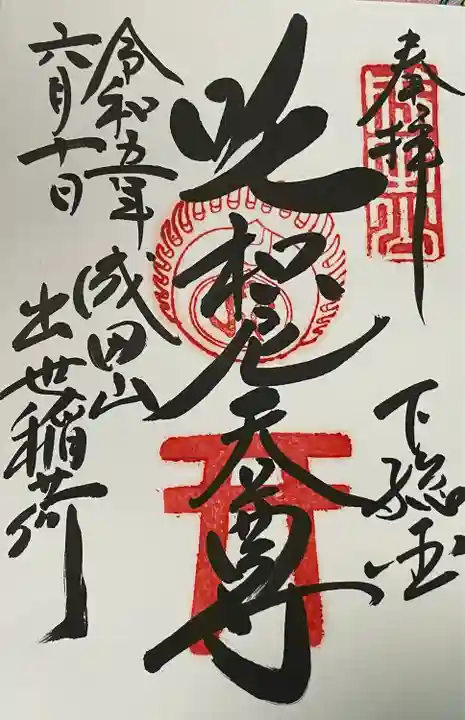 奉拝
下総国
吒枳尼天尊
令和五年
六月十日
成田山
出世稲荷